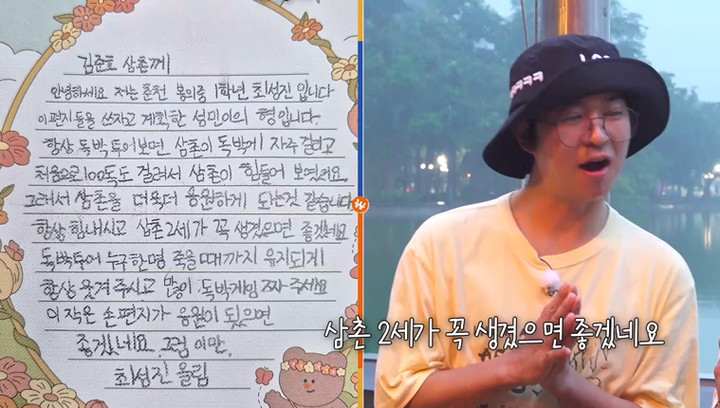 김준호 삼촌께!
안녕하세요 저는 춘천 봉의중 1학년 최성진 입니다
이 편지들을 쓰자고 계획한 성민이의 형입니다.
항상 독박투어보면 삼촌이 독박에 자주 걸리고
처음으로 100독도 걸려서 삼촌이 힘들어 보였어요.
그래서 삼촌을 더욱더 응원하게 되는것 같습니다
항상 힘내시고 삼촌 2세가 꼭 생겼으면 좋겠네요
독박투어 누구한명 죽을 때까지 유지되게
항상 웃겨 주시고 많이 독박게임 져 주세요
이 작은 손편지가 응원이 됐으면
좋겠네요. 그럼 이만.
최성진 올림
삼촌 2세가 꼭 생겼으면 좋겠네요